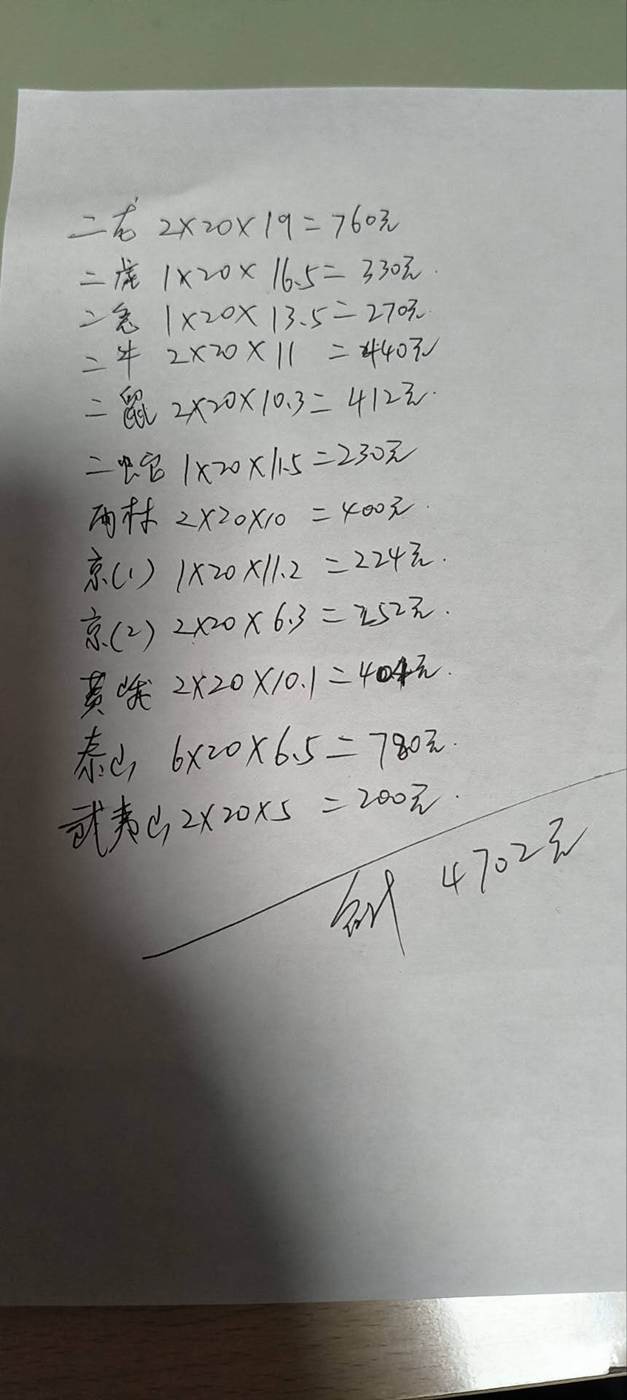 二龙 2×20×19=760元
二虎 1×20×16.5=330元.
二兔 1×20×13.5=270元.
二牛 2×20×11 =440元
二鼠 2×20×10.3=412元.
二蛇 1×20×11.5=230元
雨林 2×20×10 =400元.
京(1) 1×20×11.2 =224元.
京(2) 2×20×6.3=252元.
黄峨 2×20×10.1=404元.
泰山 6×20×6.5=780元.
武夷山 2×20×5 =200元.
合计 4702元